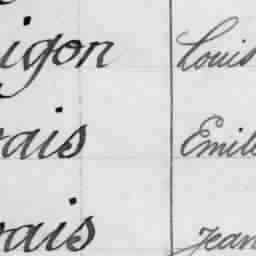 igon Louis
vais Emile
vais Jean